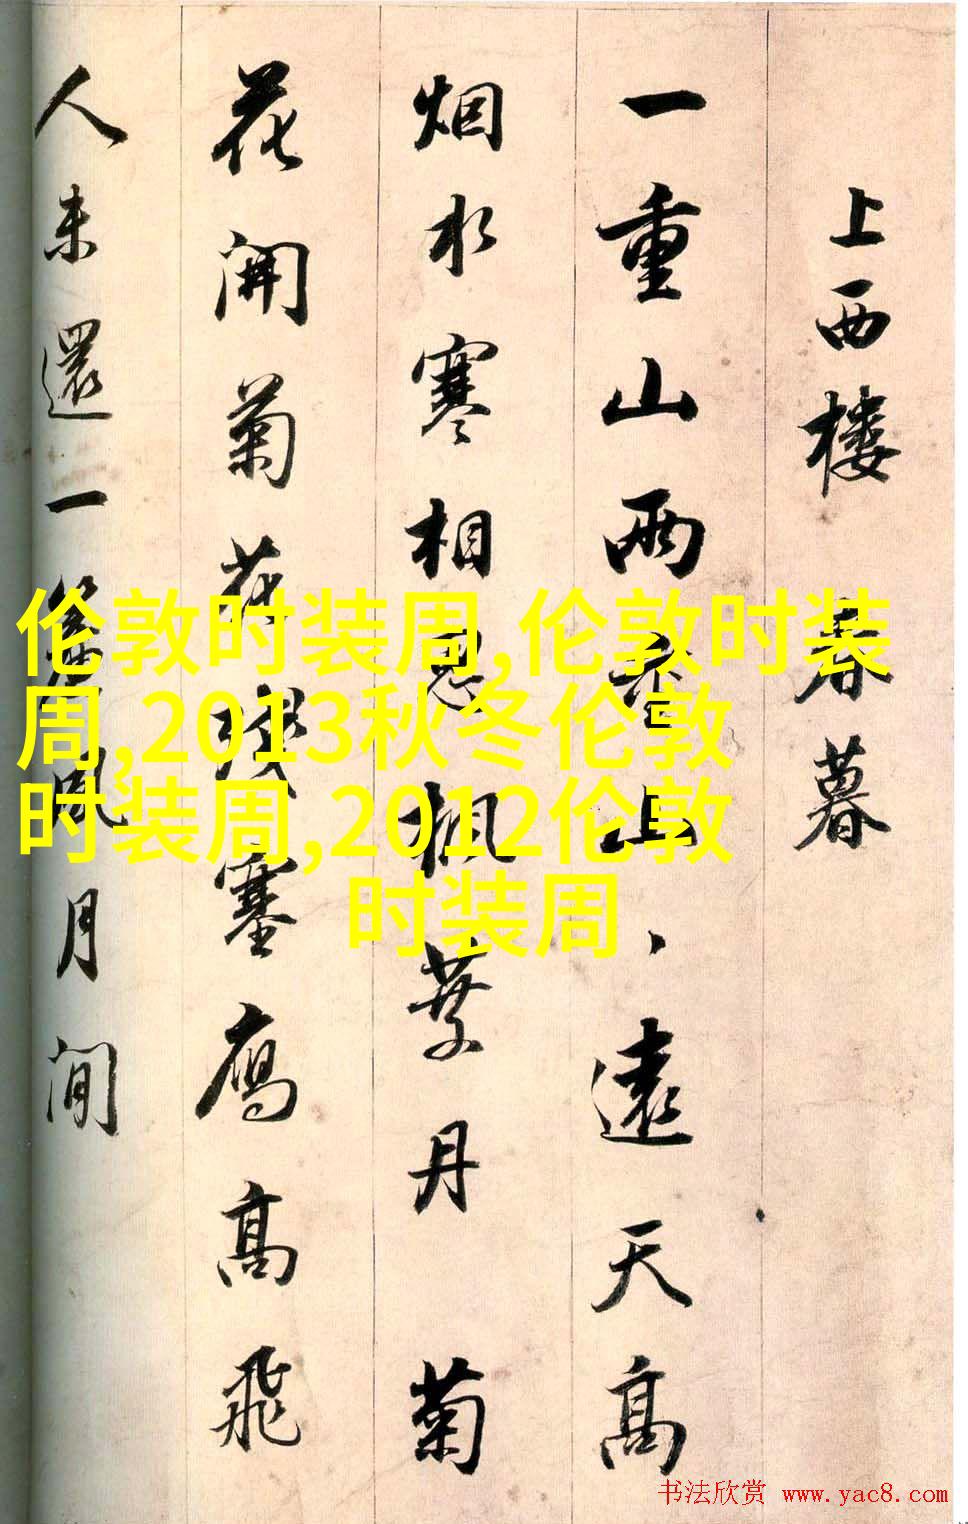 上西楼 春暮
一重山兩重山、遠天高
烟水寒相思楓葉丹 菊
花開菊花殘塞鴈高飛
人未還一簾風月閒
伦敦时装周,伦敦时装
周,2013秋冬伦敦
时装周,2012伦敦
时装周
书法欣赏 www.yac8.com